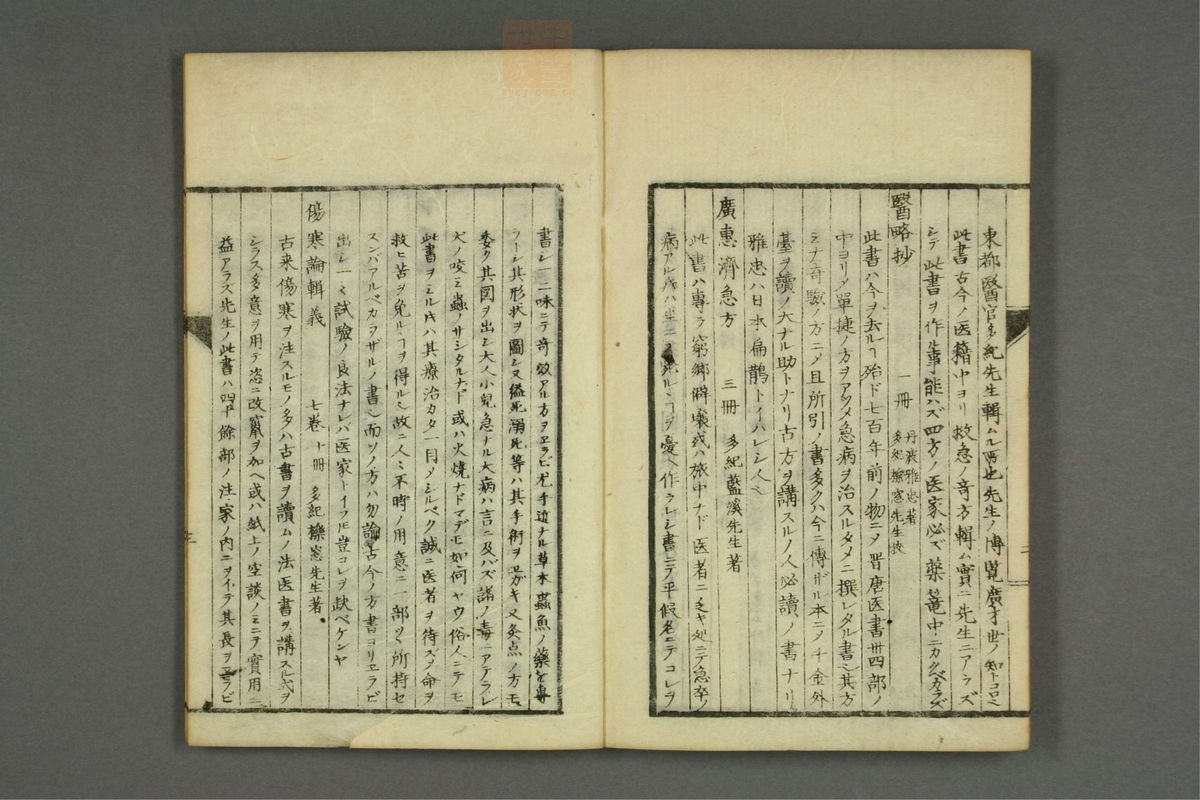 東都醫官多紀先生輯ムル所也先生ノ博覧廣才世ノ知トコロニ
此書古今ノ医籍中ヨリ救急ノ奇方輯ム實ニ先生ニアラズ
シテ此書ヲ作ル事能ハズ四方ノ医家必ズ薬篭中ニカクベカラズ
醫略抄 一冊 丹波雅忠著 多紀櫟窓先生校
此書ハ今ヲ去ルヿ殆ド七百年前ノ物ニメ晋唐医書卅四部ノ
中ヨリメ單捷ノ方ヲアツメ急病ヲ治スルタメニ撰レタル書其方
ミナ奇驗ノ方ニメ且所引ノ書多クハ今ニ傳ザル本ニメ千金外
臺ヲ讀ノ大ナル助トナリ古方ヲ講スルノ人必讀ノ書ナリ
雅忠ハ日本ノ扁鵲トイハレシ人
廣惠濟急方 三冊 多紀藍溪先生著
此書ハ專ラ窮郷僻壤或ハ旅中ナド医者ニ乏キ処ニテ急卒ノ
病アル片ハ死ルヿヲ憂ヘ作ラレシ書ニテ平假名ニテコレヲ
書シ一二味ニテ奇效アル方ヲヱラビ尤手近ナル草木蟲魚ノ藥ヲ專
ラーシ其形状ヲ圖シ又縊死溺死等ハ其手術ヲヱガキ又灸点ノ方モ
委ク其図ヲ出シ大人小兒急ナル大病ハ言ニ及バズ諸ノ毒ニアテラレ
犬ノ咬ミ蟲ノサシタルナド或ハ火焼ナドマデモ如何ヤウ俗人ニテモ
此書ヲミル片ハ其療治カタ一目ノシルベク誠ニ医者ヲ待ズメ命ヲ
救ヒ苦ヲ免ルヿヲ得ル故ニ人ミ不時ノ用意ニ一部ヅヽ所持セ
スンバアルベカラザルノ書而ソノ方ハ勿論古今ノ方書ヨリヱラビ
出シ一々試驗ノ良法ナレバ医家トイフ圧豈コレヲ缺ベケンヤ
傷寒論輯義 七巻十冊 多紀櫟窓先生著
古来傷寒ヲ注スルモノ多ハ古書ヲ讀ムノ法医書ヲ講スル式ヲ
シラス多意ヲ用テ恣ニ改竄ヲ加ヘ或ハ紙上ノ空談ノミニテ實用ニ
益アラス先生ノ此書ハ四十餘部ノ注家ノ内ニヲイテ其長ヲヱラビ